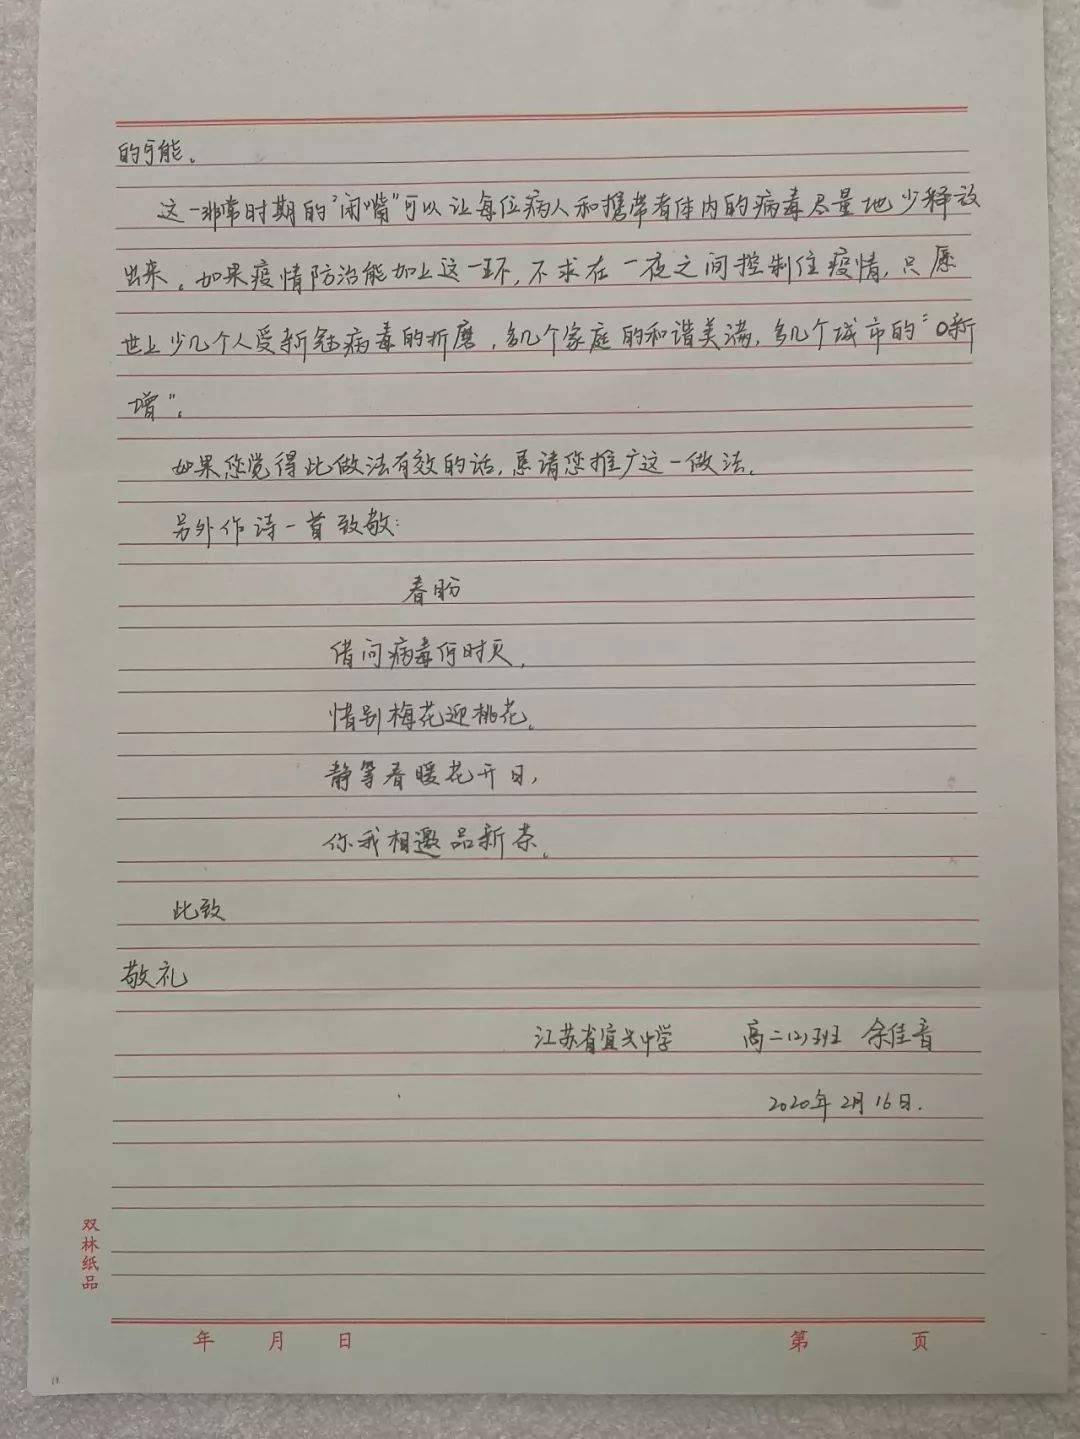 的可能。
这一非常时期的“闭嘴”可以让每位病人和携带者体内的病毒尽量地少释放
出来。如果疫情防治能加上这一环,不求在一夜之间控制住疫情,只愿
世上少几个人受新冠病毒的折磨,多几个家庭的和谐美满,多几个城市的“0新
增”。
如果您觉得此做法有效的话,恳请您推广这一做法。
另外作诗一首致敬:
春盼
借问病毒何时灭,
惜别梅花迎桃花。
静等春暖花开日,
你我相邀品新茶。
此致
敬礼
江苏省宜兴中学 高二(2)班 余佳音
2020年2月16日.
双林纸品
年 月 日 第 页